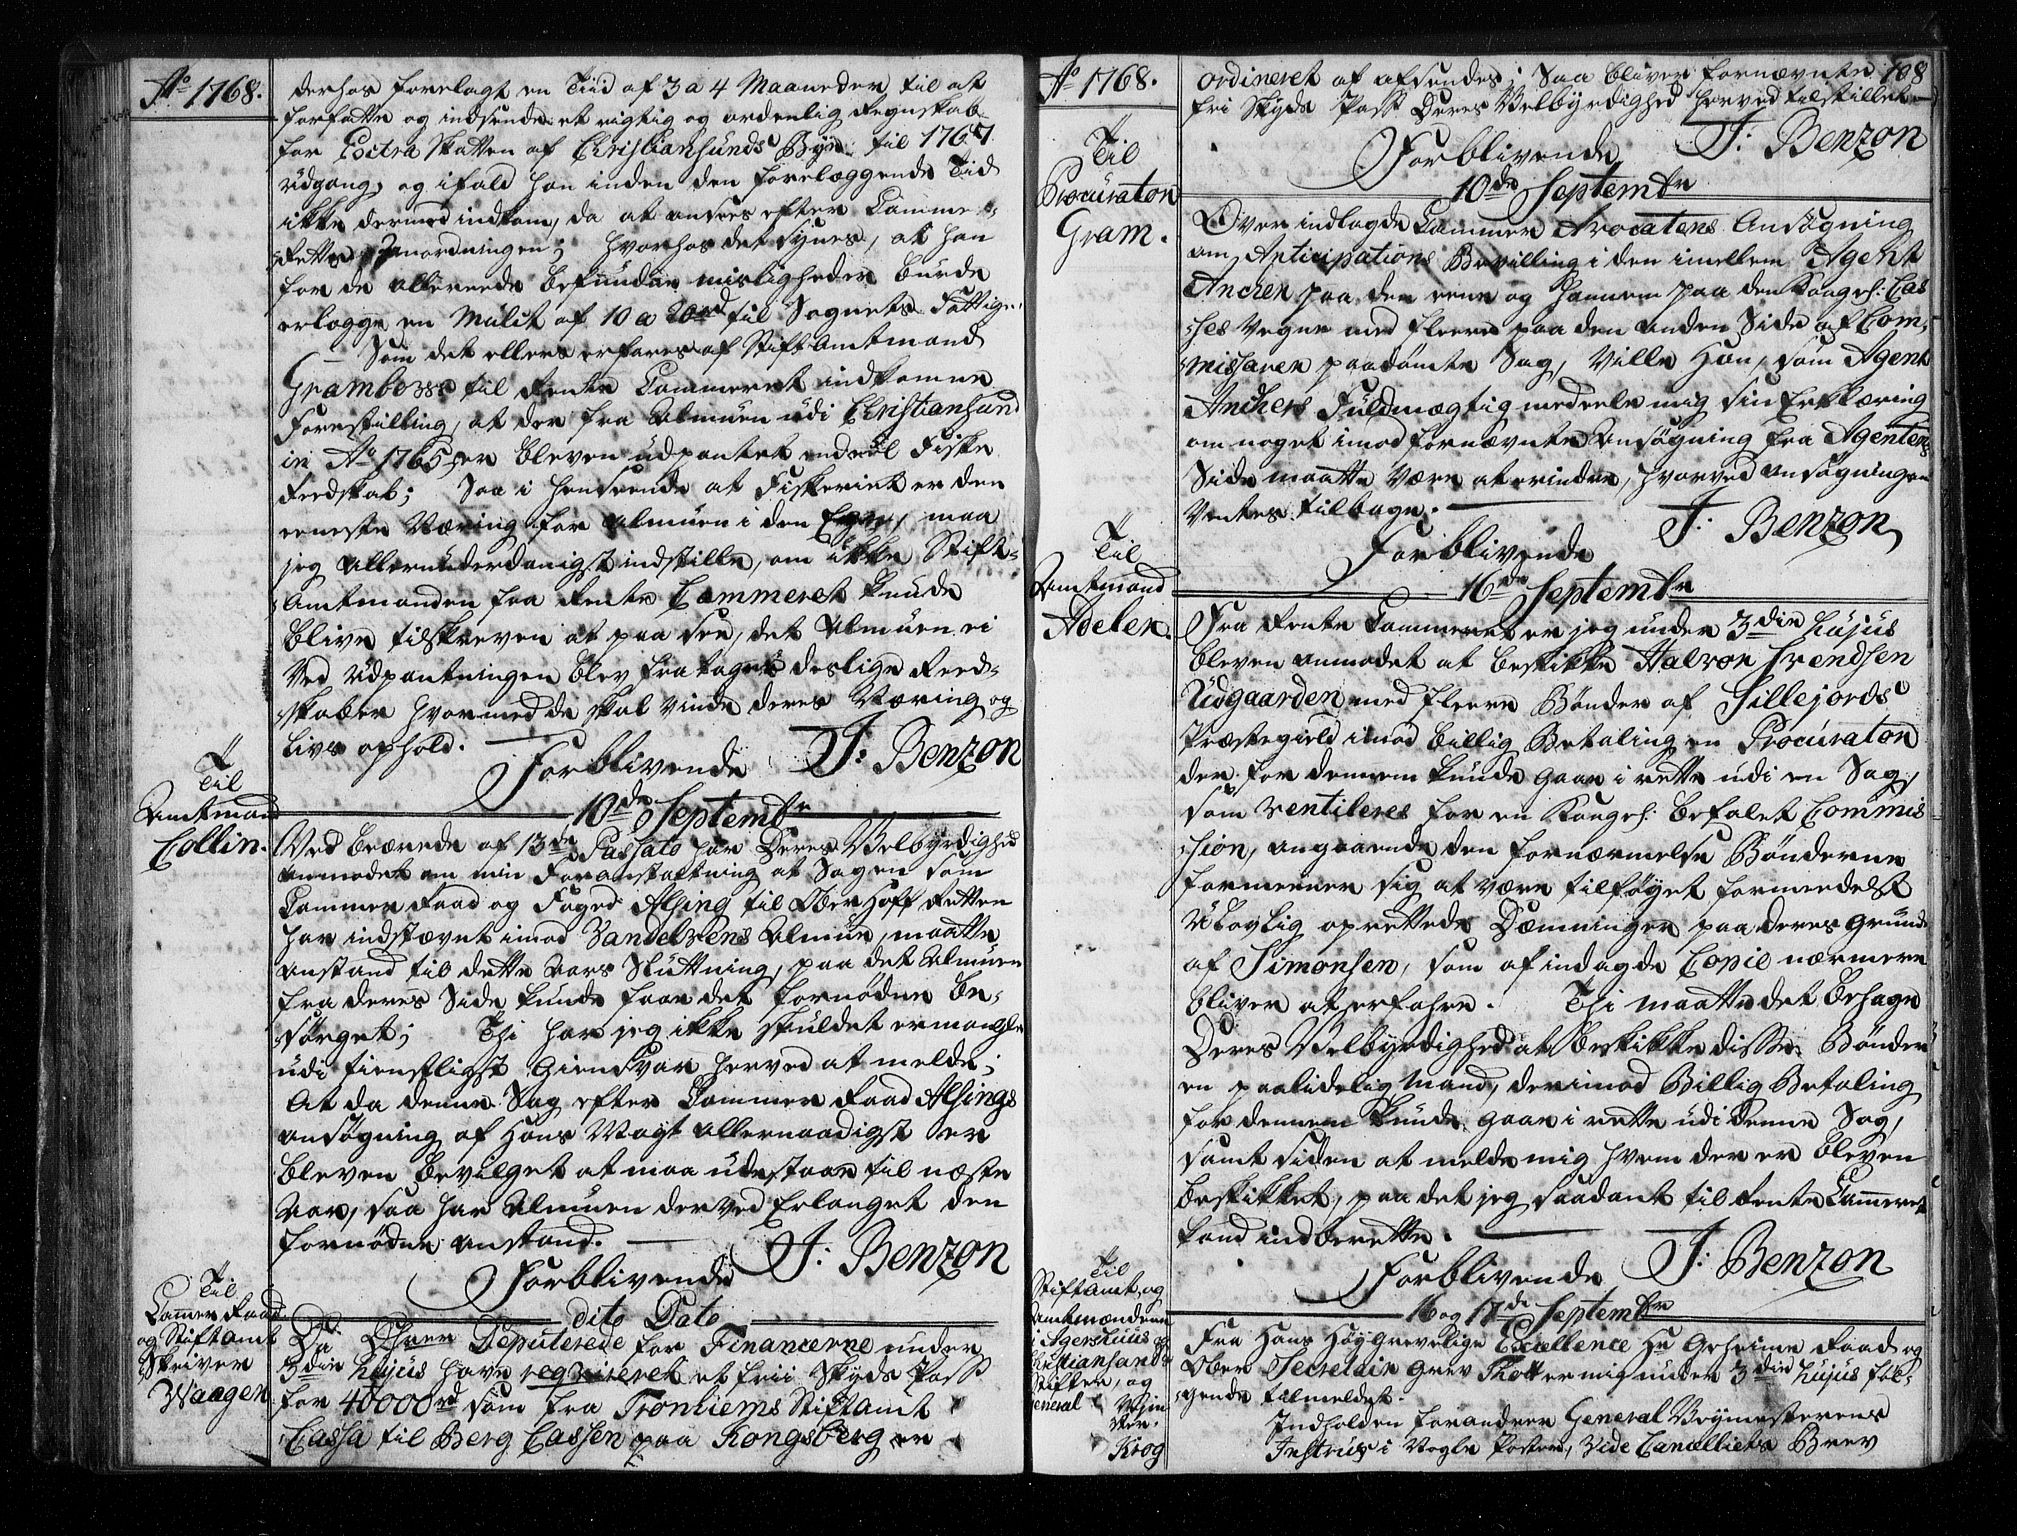 Ao 1768.
derhos forelagt en Tiid af 3 a 4 Maaneder til at
forfatte og indsende et rigtig og ordenlig Regnskab
for Extra Skatten af Christiansunds Bye til 1767
udgang, og ifald han inden den forelæggende Tid
ikke dermed indkom, da at ansees efter Camme-
Rettes Anordningen; hvorhos det synes, at han
for de allereede befundne misligheder burde
erlægge en Mulct af 10 a 20 rd til Sognets Fattige.
Som det ellers erfares af Stiftamtmand
Grambows til Rente Cammeret indkomne
Forestilling, at der fra Almuen udi Christiansund
in Ao 1765 er bleven udpantet endeel Fiske
Reedskab; Saa i henseende at Fiskeriet er den
eeneste Næring for Almuen i den Egn, maa
jeg allerunderdanigst indstille, om ikke Stift-
Amtmanden fra Rente Cammeret kunde
blive tilskreven at paa see, det Almuen ei
ved Udpantningen blev fratagne deslige Reed-
skaber hvormed de skal vinde deres Næring og
Livs ophold.
Forblivende J: Benzon
Til
Amtmand
Collin.
10de Septembr
Ved beærede af 13de Passato har Deres Velbyrdighed
anmodet om min Foranstaltning at Sagen som
Cammer Raad og Foged Alsing til Ober Hoff Retten
har indstævnet imod Vandelvens Almue, maatte
anstand til dette Aars Slutning, paa det Almuen
fra deres Side kunde faae det fornødne be-
sørget; Thi har jeg ikke skuldet ermangle
udi tienstligst Giensvar herved at melde;
At da denne Sag efter Cammer Raad Alsings
ansøgning af Hans Mayt allernaadigst er
bleven bevilget at maa udestaae til næste
Aar, saa har Almuen derved Erlanget den
fornødne anstand.
Forblivende J: Benzon
Til
Camer Raad
og Stiftamt
Skriver
Waagen
dito Dato
Da Dhrer Deputerede for Financerne under
3die hujus have requireret et frii Skyds Pass
for 40000 rd som fra Tronhiems Stiftamt
Cassa til Berg Cassen paa Kongsberg er
Ao 1768.
108
ordineret at afsendes; Saa bliver fornævnte
fri Skyds Pass Deres Velbyrdighed herved tilstillet
Forblivende J: Benzon
Til
Procurator
Gram.
10de Septembr
Over indlagde Cammer Avocatens Ansøgning
om Anticipations Bevilling i den imellem Agent
Ancher paa den eene og Hannem paa den Kongel: Cas
ses Vegne med fleere paa den anden Side af Com-
missairer paadømte Sag, Ville Han, som Agent
Anchers Fuldmægtig meddele mig sin Erklæring
om noget imod fornævnte Ansøgning fra Agentens
Side maatte være at erindre, hvorved Ansøgningen
Ventes tilbage.
Forblivende J: Benzon
Til
Amtmand
Adeler.
16de Septembr
Fra Rente Cammeret er jeg under 3die hujus
bleven anmodet at beskikke Halvor Svendsen
Udgaarden med fleere Bønder af Sillejords
Præstegield imod billig Betaling en Procurator
der for dennem kunde gaae i rette udi en Sag,
som ventileres for en Kongel: befalet Commis
sion, angaaende den fornærmelse Bønderne
formeener sig at være tilføyet formedelst
Ulovlig oprettede Dæmninger paa deres grund
af Simonsen, som af indagde Copie nærmere
bliver at erfahre. Thi maatte det behage
Deres Velbyrdighed at beskikke disse Bønder
en paalidelig Mand, der imod Billig Betaling
for dennem kunde gaae i rette udi denne Sag,
samt siden at melde mig hvem der er bleven
beskikket, paa det jeg saadant til Rente Cammeret
kand indberette.
Forblivende J: Benzon
Til
Stiftamt, og
Amtmændene
i Agershuus og
Christiansands
Stifter, og
General Vejme
ster.
Krog
16 og 17de Septembr
Fra Hans Høy Grevelige Excellence Hr Geheime Raad og
Ober Secretair Grev Thott er mig under 3die hujus føl-
gende tilmeldet.
Indholden forandrer General Veymesterens
Instrux i Nogle Poster, vide Cancelliets Brev